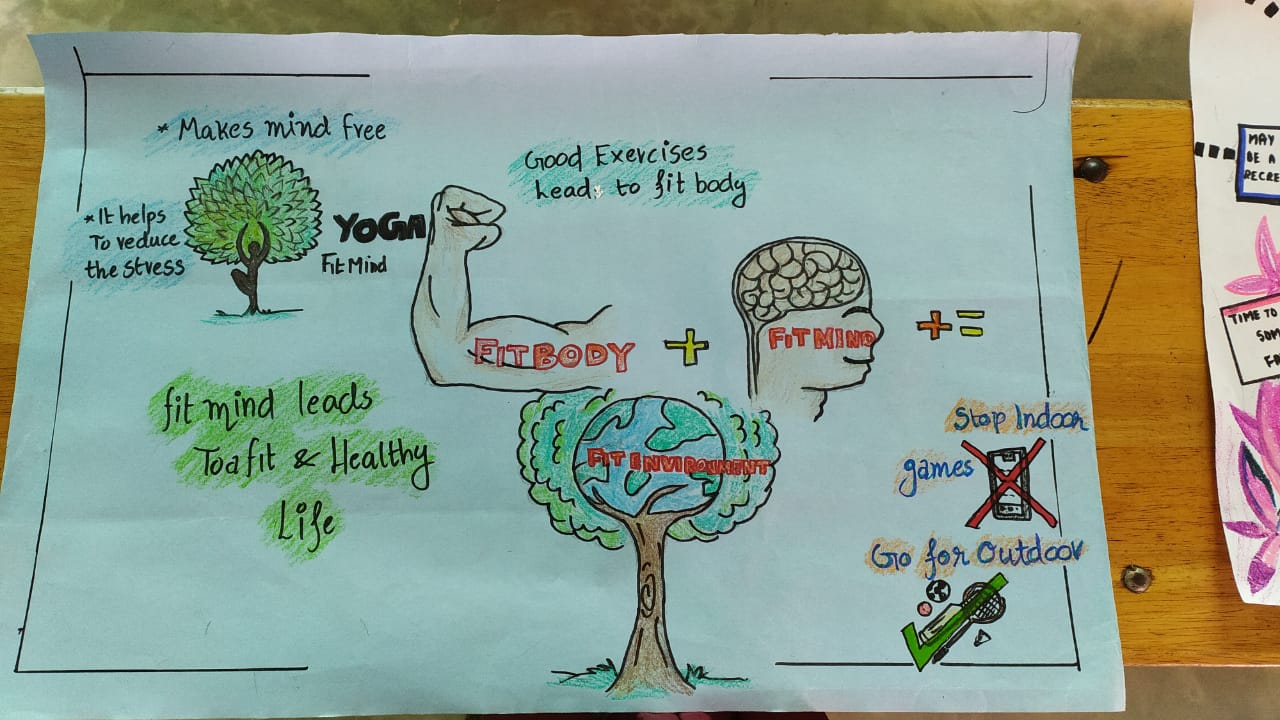 * Makes mind free
* It helps
To reduce
the stress
YOGA
Fit Mind
Good Exercises
leads to fit body
FIT BODY
+
FIT MIND
+ =
FIT ENVIRONMENT
fit mind leads
To a fit & Healthy
Life
Stop Indoor
games
Go for Outdoor
MAY
BE A
RECRE
TIME TO
SOM